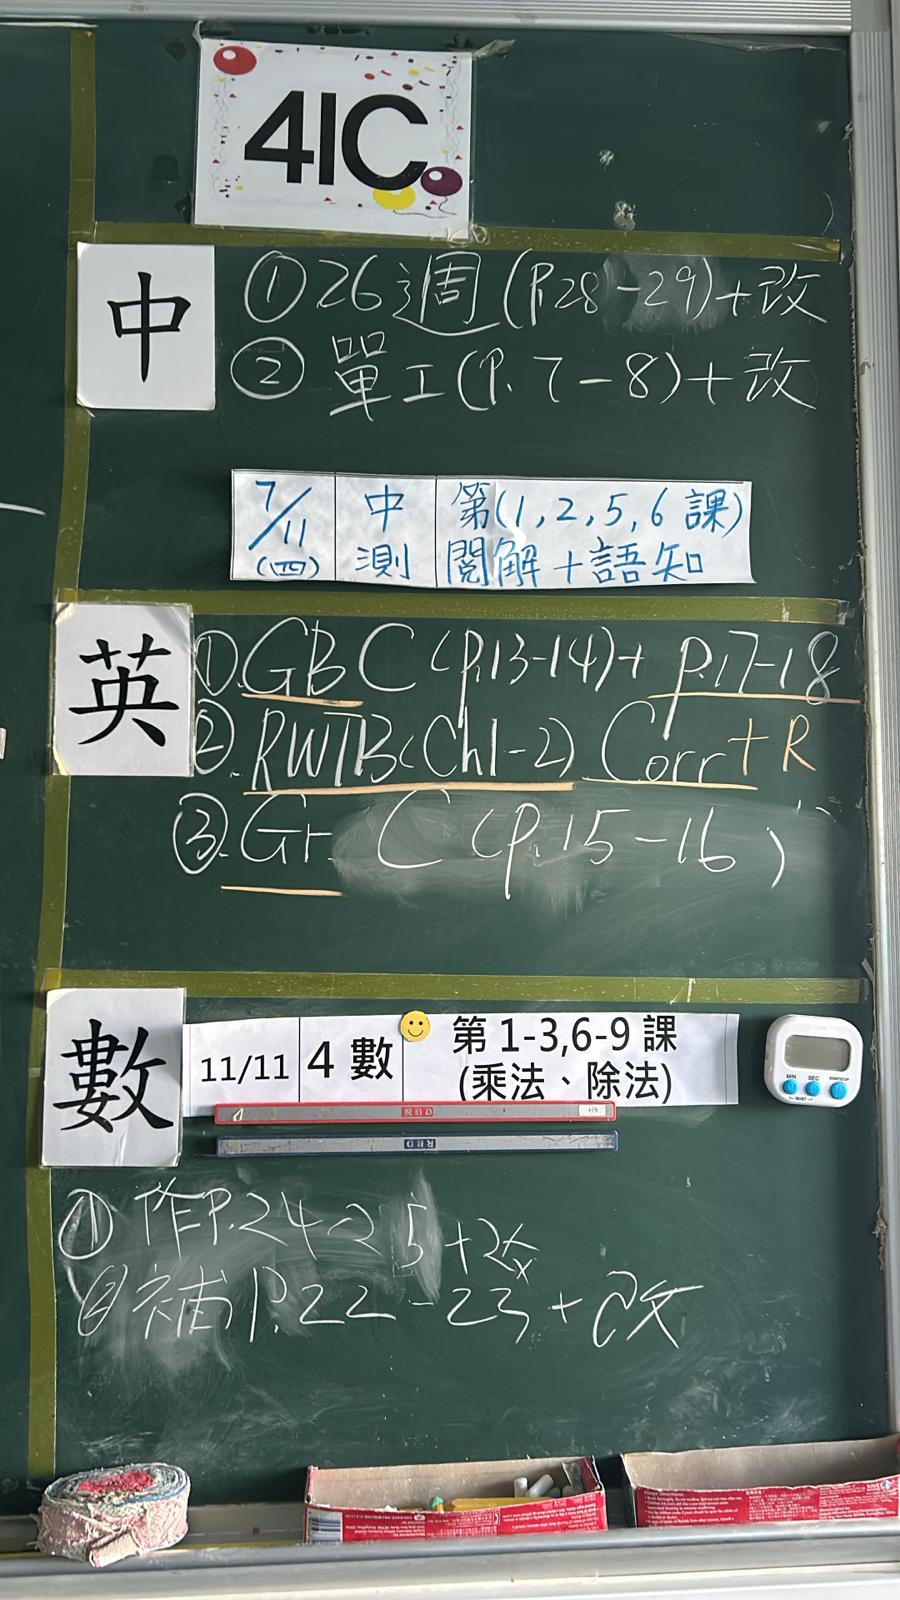 4IC
中
①26週(P.28-29)+改
② 單工(P.7-8)+改
7/11
(四)
中測
第(1,2,5,6課)
閱解+語知
英
①.GBC(p.13-14)+p.17-18
②.RWTB(Ch1-2) Corr+R
③.Gr. C (p.15-16)
數
11/11
4數
第 1-3,6-9 課
(乘法、除法)
MIN SEC START/STOP
RESET
① 作P.24-25+改
② 補P.22-23+改